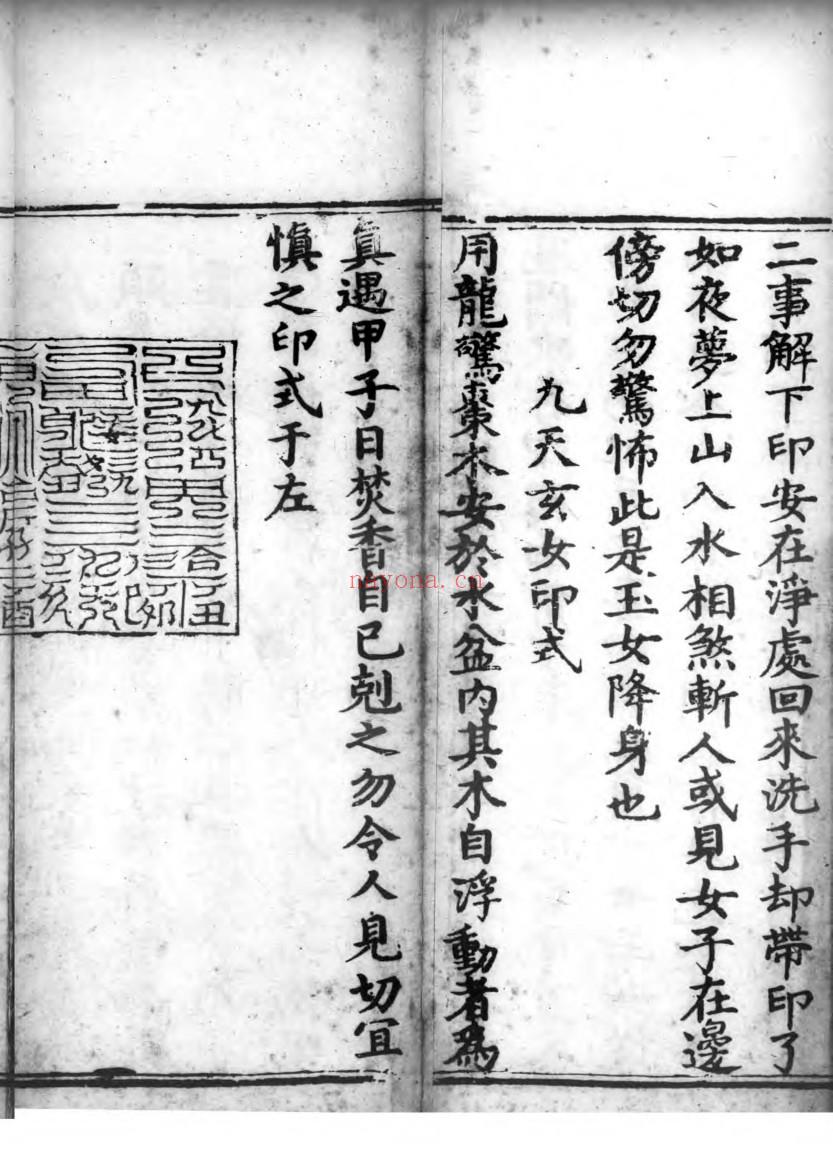 二事解下印安在淨處回來洗手却帶印了
如夜夢上山入水相煞斬人或見女子在邊
傍切勿驚怖此是玉女降身也
九天玄女印式
用龍驚棗木安於水盆内其木自浮動者為
眞遇甲子日焚香自已剋之勿令人見切宜
慎之印式于左
nayona.cn